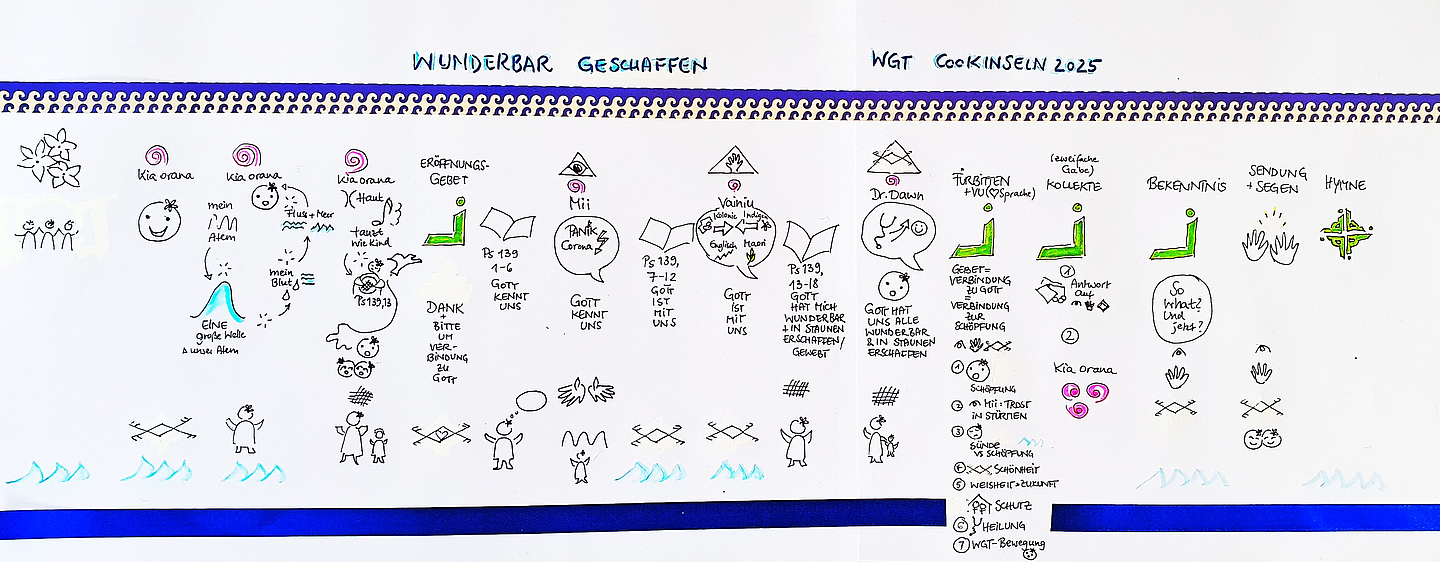 WUNDERBAR GESCHAFFEN
WGT COOKINSELN 2025
Kia orana
Kia orana
mein
Atem
EINE
große Welle
unser Atem
Fluss + Meer
mein
Blut
Kia orana
Haut
tanzt
wie Kind
Ps 139,13
ERÖFFNUNGS-
GEBET
DANK
+
BITTE
UM
VER-
BINDUNG
ZU
GOTT
Ps 139
1-6
GOTT
KENNT
UNS
Mii
PANIK
Corona
GOTT
KENNT
UNS
Ps 139,
7-12
GOTT
IST
MIT
UNS
Vainiu
Kolonie Indigen
Englisch Maori
GOTT
IST
MIT
UNS
Ps 139,
13-18
GOTT
HAT MICH
WUNDERBAR
+ IN STAUNEN
ERSCHAFFEN/
GEWEBT
Dr. Dawn
GOTT HAT
UNS ALLE
WUNDERBAR
& IN STAUNEN
ERSCHAFFEN
FÜRBITTEN
+VU (Sprache)
GEBET =
VERBINDUNG
ZU GOTT
=
VERBINDUNG
ZUR
SCHÖPFUNG
1
SCHÖPFUNG
2 Mii: TROST
IN STÜRMEN
3
SÜNDE
VS SCHÖPFUNG
4 SCHÖNHEIT
5 WEISHEIT > ZUKUNFT
SCHUTZ
6 HEILUNG
7 WGT-Bewegung
(zweifache
Gabe)
KOLLEKTE
1
Antwort
auf
2
Kia orana
BEKENNTNIS
So
what?
Und
jetzt?
SENDUNG
+ SEGEN
HYMNE